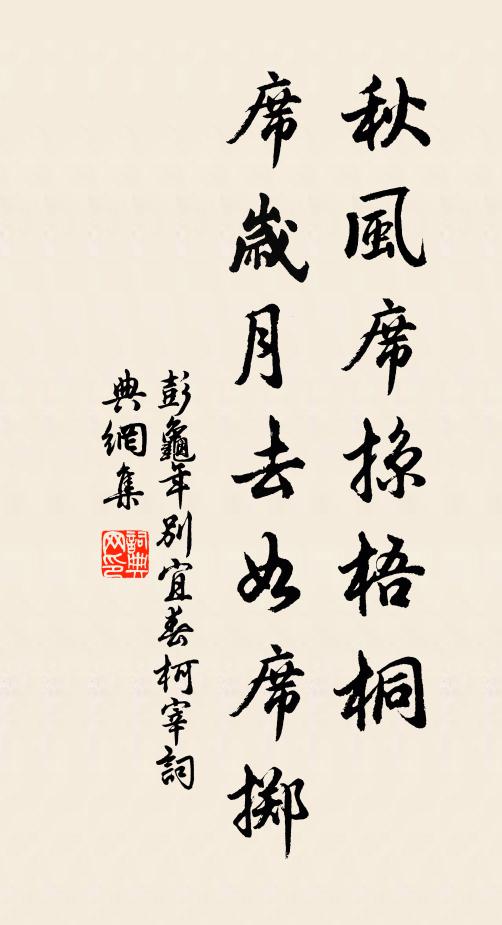 秋風席掠梧桐
席歲月去如席擲
彭龜年別宜春柯宰詞
典網集
詞典网印